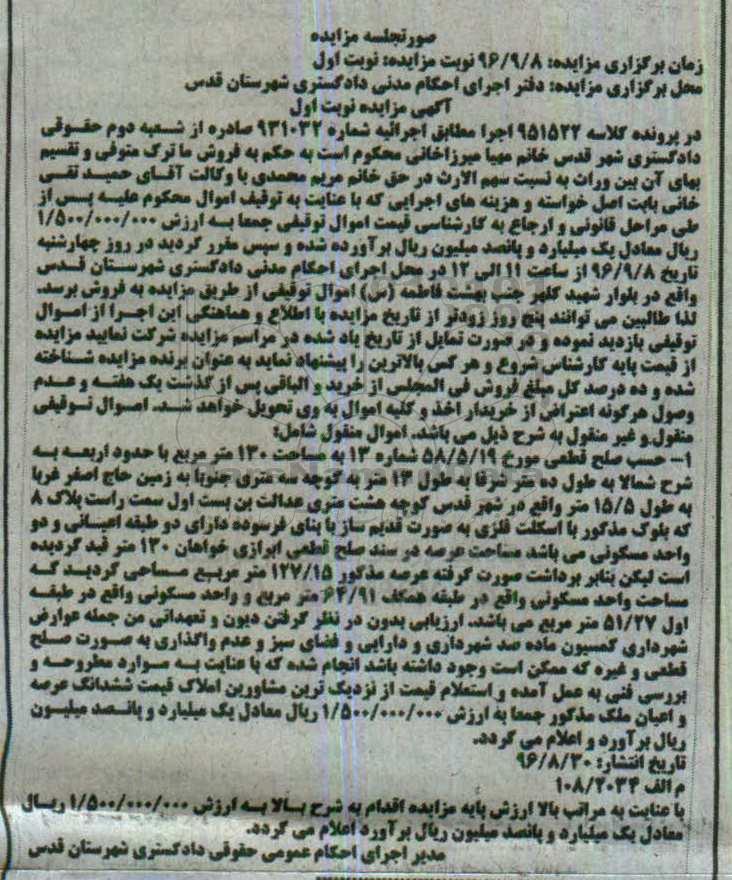 صورتجلسه مزایده
زمان برگزاری مزایده: ۹۶/۹/۸ نوبت مزایده: نوبت اول
محل برگزاری مزایده: دفتر اجرای احکام مدنی دادگستری شهرستان قدس
آگهی مزایده نوبت اول
در پرونده کلاسه ۹۵۱۵۲۲ اجرا مطابق اجرائیه شماره ۹۳۱۰۳۲ صادره از شعبه دوم حقوقی
دادگستری شهر قدس خانم مهیا میرزاخانی محکوم است به حکم به فروش ما ترک متوفی و تقسیم
بهای آن بین وراث به نسبت سهم الارث در حق خانم مریم محمدی با وکالت آقای حمید تقی
خانی بابت اصل خواسته و هزینه های اجرایی که با عنایت به توقیف اموال محکوم علیه پس از
طی مراحل قانونی و ارجاع به کارشناسی قیمت اموال توقیفی جمعا به ارزش ۱/۵۰۰/۰۰۰/۰۰۰
ریال معادل یک میلیارد و پانصد میلیون ریال برآورده شده و سپس مقرر گردید در روز چهارشنبه
تاریخ ۹۶/۹/۸ از ساعت ۱۱ الی ۱۲ در محل اجرای احکام مدنی دادگستری شهرستان قدس
واقع در بلوار شهید کلهر جنب بهشت فاطمه (س) اموال توقیفی از طریق مزایده به فروش برسد.
لذا طالبین می توانند پنج روز زودتر از تاریخ مزایده با اطلاع و هماهنگی این اجرا از اموال
توقیفی بازدید نموده و در صورت تمایل از تاریخ یاد شده در مراسم مزایده شرکت نمایید مزایده
از قیمت پایه کارشناس شروع و هر کس بالاترین را پیشنهاد نماید به عنوان برنده مزایده شناخته
شده و ده درصد کل مبلغ فروش فی المجلس از خرید و الباقی پس از گذشت یک هفته و عدم
وصول هرگونه اعتراض از خریدار اخذ و کلیه اموال به وی تحویل خواهد شد. اموال توقیفی
منقول و غیر منقول به شرح ذیل می باشد. اموال منقول شامل:
۱- حسب صلح قطعی مورخ ۵۸/۵/۱۹ شماره ۱۳ به مساحت ۱۳۰ متر مربع با حدود اربعه به
شرح شمالا به طول ده متر شرقا به طول ۱۳ متر به کوچه سه متری جنوبا به زمین حاج اصغر غربا
به طول ۱۵/۵ متر واقع در شهر قدس کوچه هشت متری عدالت بن بست اول سمت راست پلاک ۸
که بلوک مذکور با اسکلت فلزی به صورت قدیم ساز با بنای فرسوده دارای دو طبقه اعیانی و دو
واحد مسکونی می باشد مساحت عرصه در سند صلح قطعی ابرازی خواهان ۱۳۰ متر قید گردیده
است لیکن بنابر برداشت صورت گرفته عرصه مذکور ۱۲۷/۱۵ متر مربع مساحی گردید که
مساحت واحد مسکونی واقع در طبقه همکف ۶۴/۹۱ متر مربع و واحد مسکونی واقع در طبقه
اول ۵۱/۲۷ متر مربع می باشد. ارزیابی بدون در نظر گرفتن دیون و تعهداتی من جمله عوارض
شهرداری کمسیون ماده صد شهرداری و دارایی و فضای سبز و عدم واگذاری به صورت صلح
قطعی و غیره که ممکن است وجود داشته باشد انجام شده که با عنایت به موارد مطروحه و
بررسی فنی به عمل آمده و استعلام قیمت از نزدیک ترین مشاورین املاک قیمت ششدانگ عرصه
و اعیان ملک مذکور جمعا به ارزش ۱/۵۰۰/۰۰۰/۰۰۰ ریال معادل یک میلیارد و پانصد میلیون
ریال برآورد و اعلام می گردد.
تاریخ انتشار: ۹۶/۸/۳۰
م الف ۱۰۸/۲۰۳۴
با عنایت به مراتب بالا ارزش پایه مزایده اقدام به شرح بالا به ارزش ۱/۵۰۰/۰۰۰/۰۰۰ ریال
معادل یک میلیارد و پانصد میلیون ریال برآورد اعلام می گردد.
مدیر اجرای احکام عمومی حقوقی دادگستری شهرستان قدس